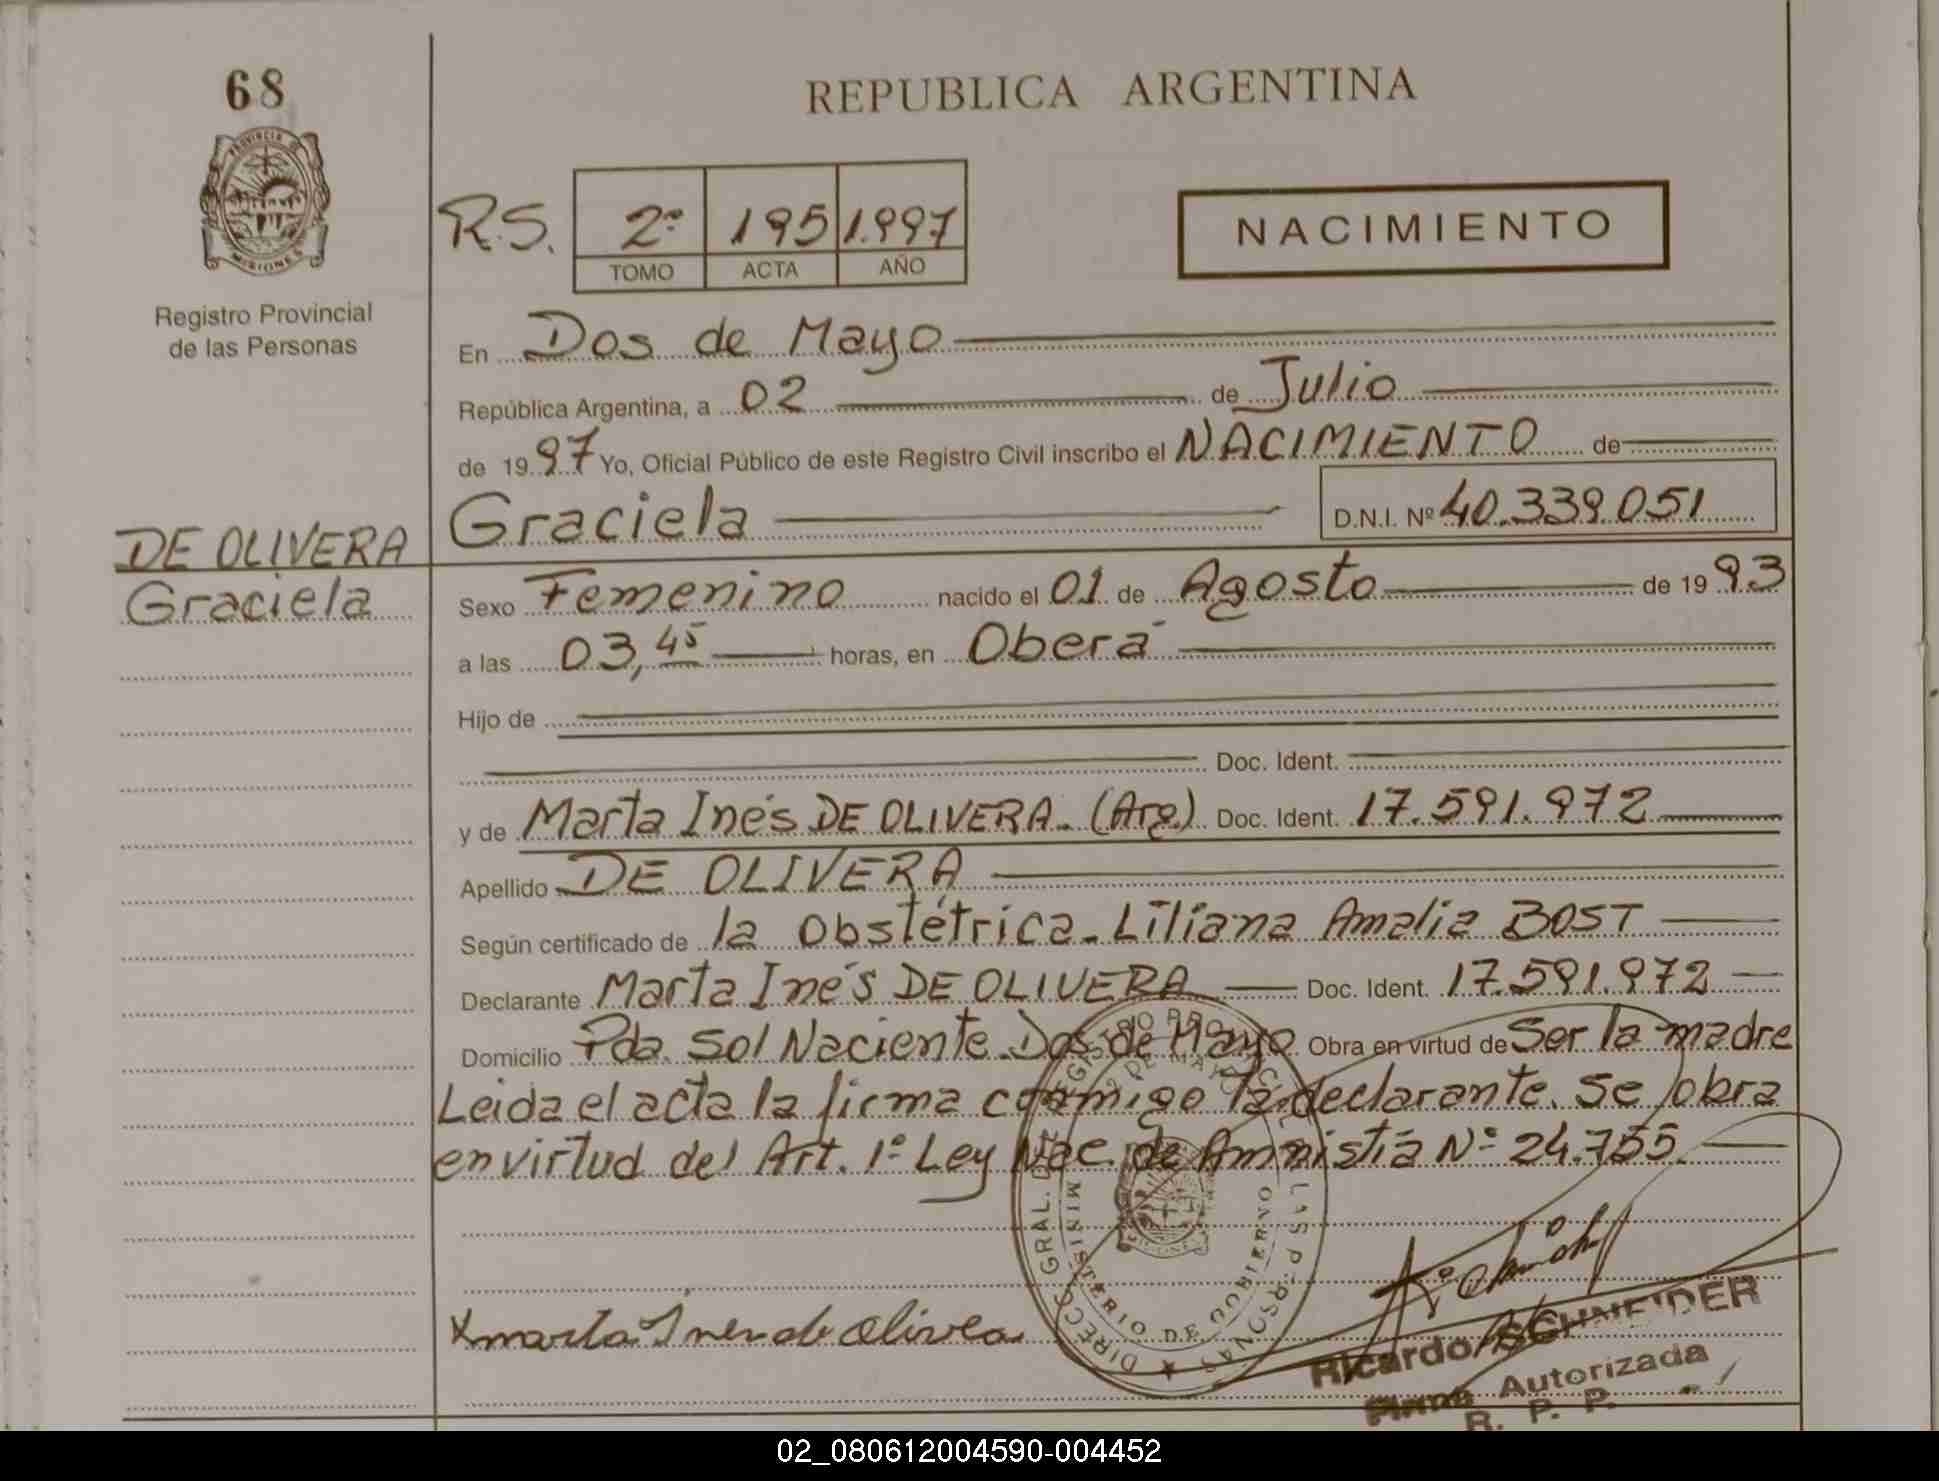 68
PROVINCIA DE
MISIONES
Registro Provincial
de las Personas
REPUBLICA ARGENTINA
R.S. 2º 195 1.997
TOMO ACTA AÑO
NACIMIENTO
En Dos de Mayo
República Argentina, a 02 de Julio
de 1997 Yo, Oficial Público de este Registro Civil inscribo el NACIMIENTO de
Graciela D.N.I. Nº 40.339.051
DE OLIVERA
Graciela
Sexo Femenino nacido el 01 de Agosto de 1993
a las 03,45 horas, en Oberá
Hijo de
Doc. Ident.
y de Marta Inés DE OLIVERA. (Arg.) Doc. Ident. 17.591.972
Apellido DE OLIVERA
Según certificado de la Obstétrica. Liliana Amalia BOST
Declarante Marta Inés DE OLIVERA Doc. Ident. 17.591.972
Domicilio Pda. Sol Naciente. Dos de Mayo Obra en virtud de Ser la madre
Leida el acta la firma conmigo la declarante. Se obra
en virtud del Art. 1º Ley Nac. de Amnistía Nº 24.755
DIRECC. GRAL. DE REGISTRO PROVINCIAL DE LAS PERSONAS
2 DE MAYO
MINISTERIO DE GOBIERNO
x marta Ines de Olivea
Ricardo SCHNEIDER
Firma Autorizada
R. P. P.
02_080612004590-004452